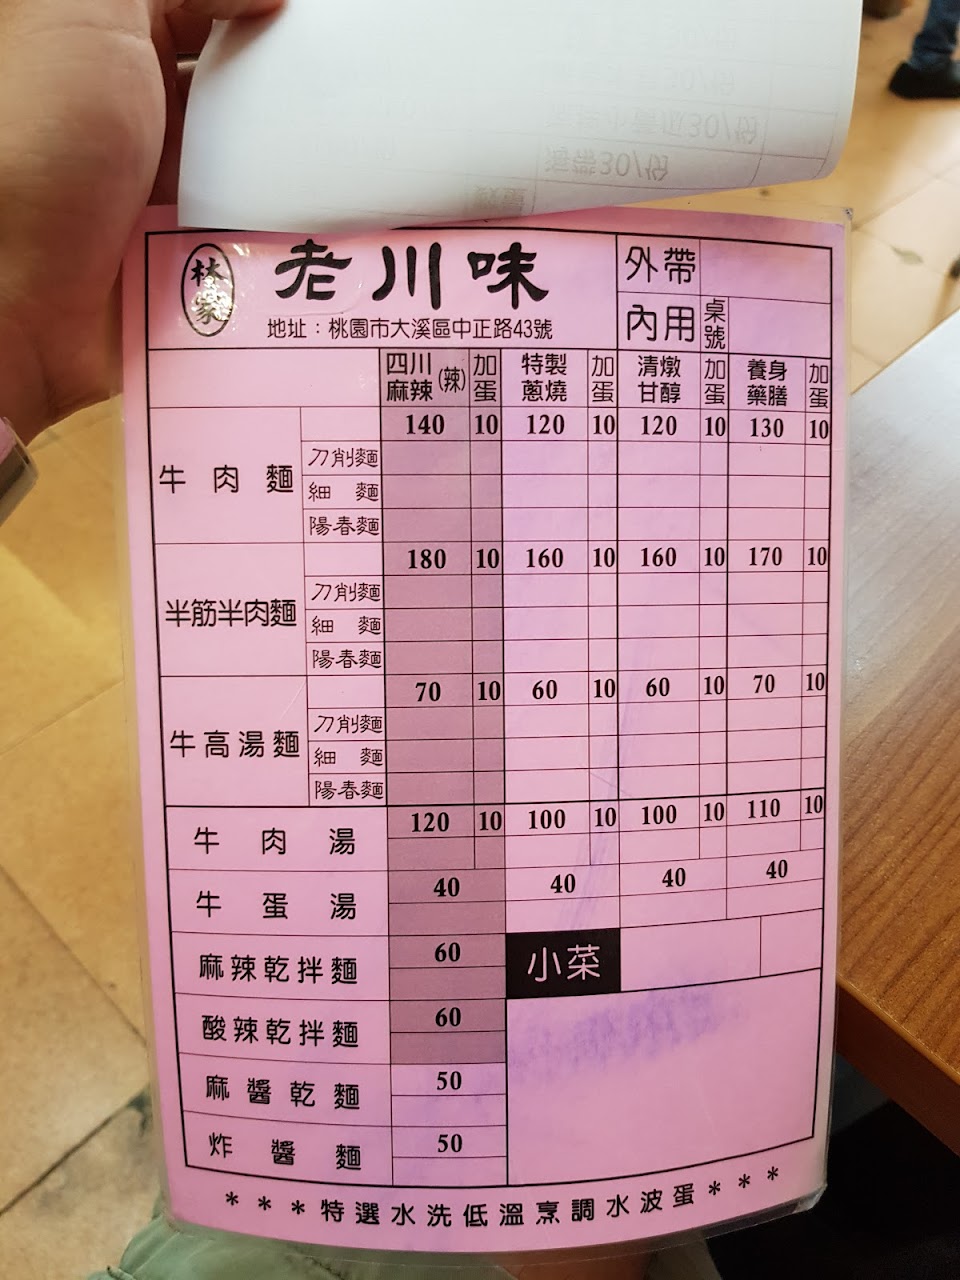 海帶30/份
林家
老川味
地址：桃園市大溪區中正路43號
外帶
內用 桌號
四川麻辣(辣) 加蛋 特製蔥燒 加蛋 清燉甘醇 加蛋 養身藥膳 加蛋
牛肉麵 140 10 120 10 120 10 130 10
刀削麵
細麵
陽春麵
半筋半肉麵 180 10 160 10 160 10 170 10
刀削麵
細麵
陽春麵
牛高湯麵 70 10 60 10 60 10 70 10
刀削麵
細麵
陽春麵
牛肉湯 120 10 100 10 100 10 110 10
牛蛋湯 40 40 40 40
麻辣乾拌麵 60 小菜
酸辣乾拌麵 60
麻醬乾麵 50
炸醬麵 50
***特選水洗低溫烹調水波蛋***